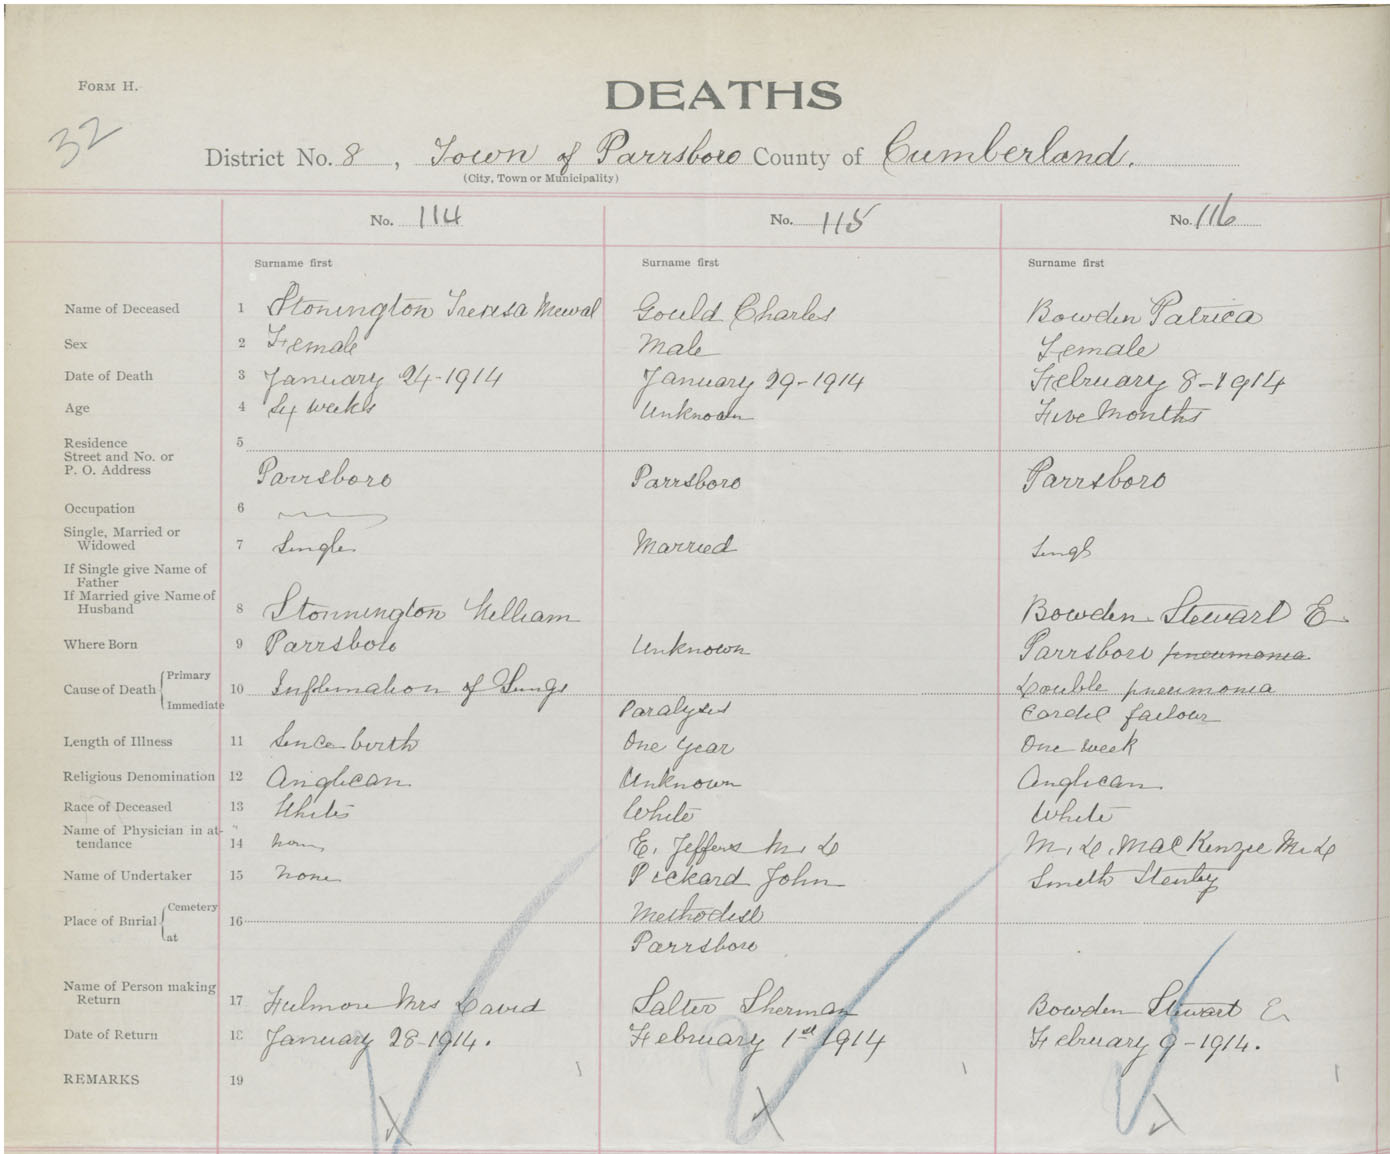 FORM H.
DEATHS
32
District No. 8, Town of Parrsboro County of Cumberland.
(City, Town or Municipality)
No. 114 No. 115 No. 116
Surname first Surname first Surname first
Name of Deceased 1 Stonington Teresa Gould Charles Bowden Patrica
Sex 2 Female Male Female
Date of Death 3 January 24-1914 January 29-1914 February 8-1914
Age 4 Six weeks Unknown Five Months
Residence 5
Street and No. or
P. O. Address Parrsboro Parrsboro Parrsboro
Occupation 6
Single, Married or
Widowed 7 Single Married Singl
If Single give Name of
Father
If Married give Name of
Husband 8 Stonnington William Bowden Stewart E
Where Born 9 Parrsboro Unknown Parrsboro pneumonia
Cause of Death Primary 10 Inflmation of Lungs Double pneumonia
Immediate Paralysis Cardil failour
Length of Illness 11 Since birth One Year One week
Religious Denomination 12 Anglican Unknown Anglican
Race of Deceased 13 White White White
Name of Physician in at-
tendance 14 none E. Jeffers M. D M. D. MacKenzie M. D
Name of Undertaker 15 none Pickard John Smith Stenley
Place of Burial Cemetery 16 Methodist
at Parrsboro
Name of Person making
Return 17 Fulmore Mrs David Salter Sherman Bowden Stewart E
Date of Return 18 January 28-1914. February 1st 1914 February 9-1914.
REMARKS 19